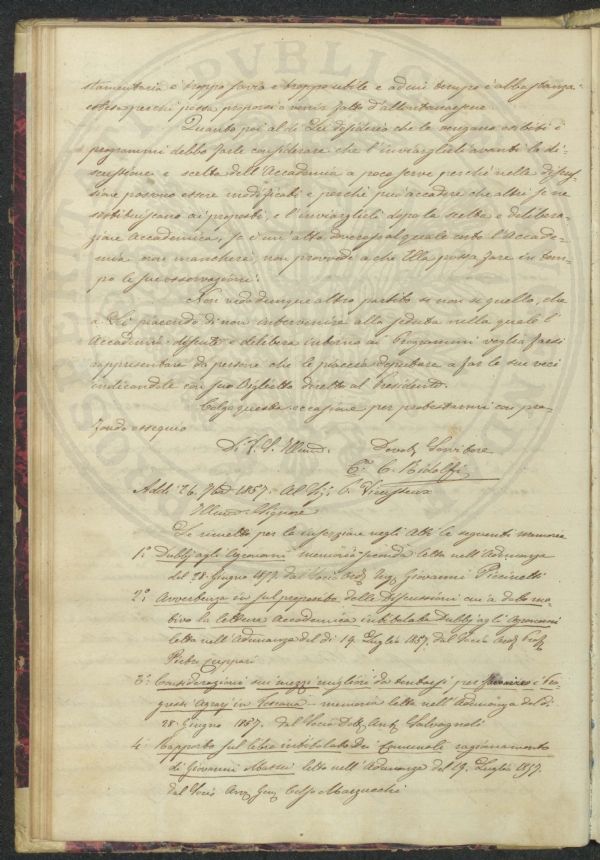 stamentaria è troppo savia e troppo utile e ad un tempo è abbastanza
estesa perchè possa proporsi o venir fatto d'allontanarsene
Quanto poi al di Lei desiderio che le vengano esibiti i
programmi debbo farle considerare che l'inviarglieli avanti la di-
scussione e scelta dell'Accademia a poco serve perchè nella discus-
sione possono essere modificati e perchè può accadere che altri se ne
sostituiscano ai proposti, e l'inviarglieli dopo la scelta e delibera-
zione Accademica, se è un'atto doveroso al quale certo l'Accade-
mia non mancherà, non provvede a che Ella possa fare in tem-
po le sue osservazioni.
Non vedo dunque altro partito se non se quello, che
a Lei piacendo di non intervenire alla seduta nella quale l'
Accademia discute e delibera intorno ai Programmi voglia farsi
rappresentare da persone che le piaccia deputare a far le sue veci
indicandole con suo Biglietto diretto al Presidente.
Colgo questa occasione per protestarmi con pro-
fondo ossequio
Di V. S. Illma. Devoto Servitore
C. Ridolfi
Adì 26. 1857. Al Sig.
Illmo. Signore
Le rimetto per la inserzione negli Atti le seguenti memorie
1.° Dubbj agli Agronomi memoria seconda letta nell'Adunanza
del 28 Giugno 1857. dal Socio Ord. Ing. Giovanni
2.° Avvertenza in sul proposito delle Discussioni cui à dato mo-
tivo la lettura Accademica intitolata Dubbj agli Agronomi
letta nell'Adunanza del dì 19. Luglio 1857. dal Socio Ord. Prof.
Pietro Cuppari
3.° Considerazioni sui mezzi migliori da tentarsi per favorire i pro-
gressi Agrarj in Toscana - memoria letta nell'Adunanza del dì
28. Giugno 1857. dal Socio Dott. Ant. Salvagnoli
4. Rapporto sul libro intitolato Dei ragionamento
di Giovanni letto nell'Adunanza del 19. Luglio 1857.
dal Socio Celso Marzucchi